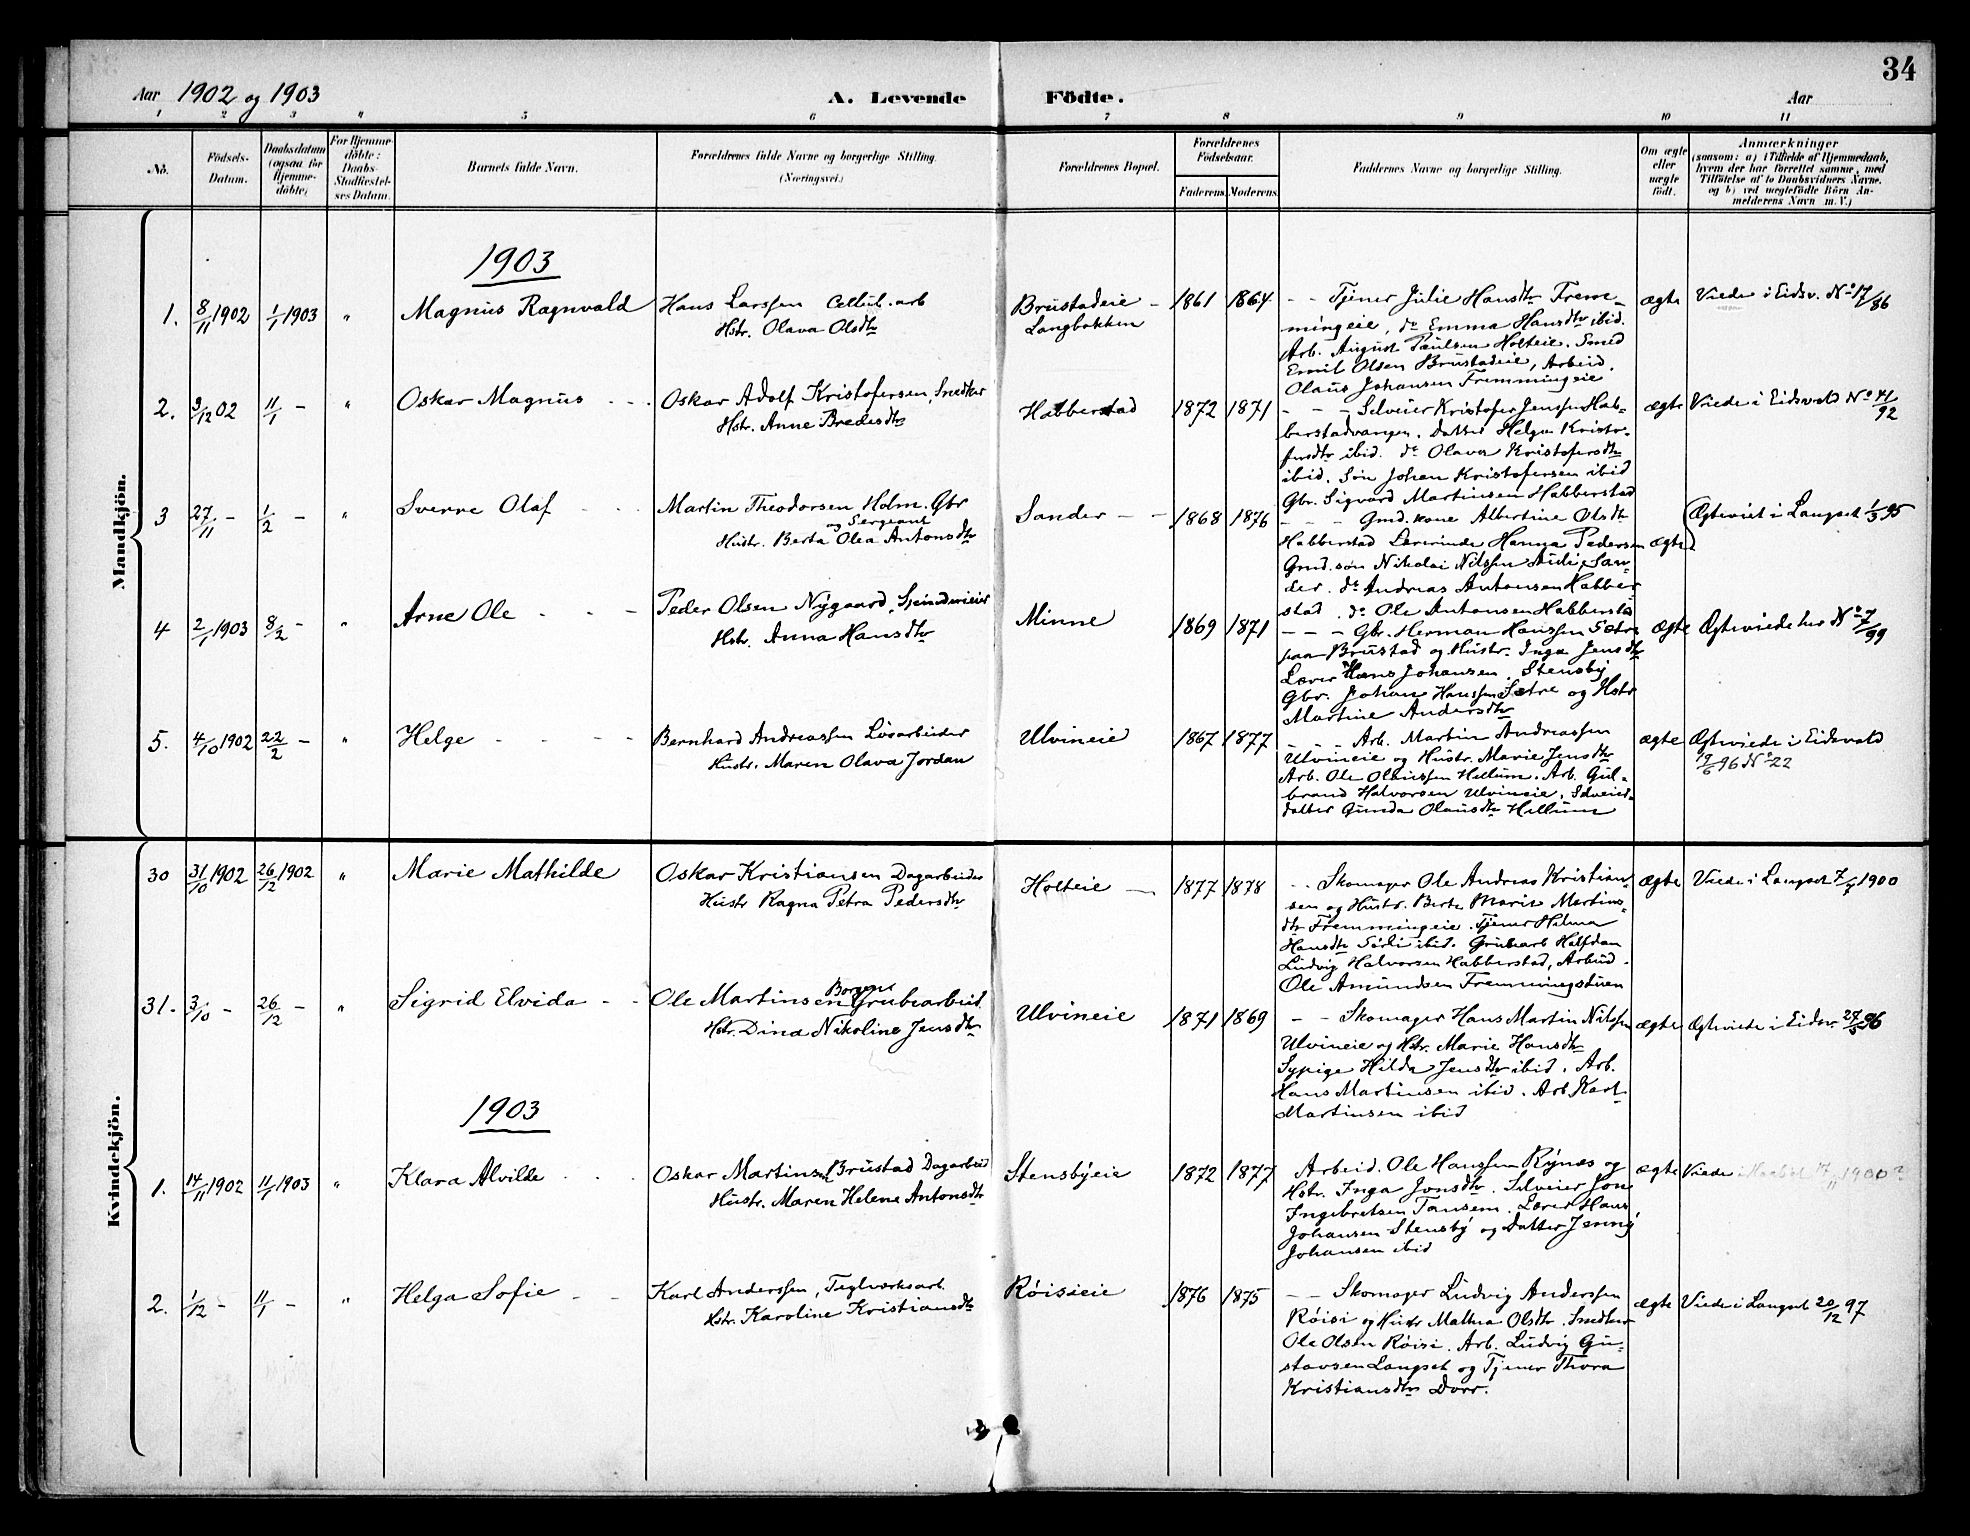 34
Aar 1902 og 1903
A. Levende Födte.
Aar
1 2 3 4 5 6 7 8 9 10 11
No.
Födsels-
Datum.
Daabsdatum
(ogsaa for
Hjemme-
döbte)
For Hjemme-
döbte:
Daabs-
Stadfæstel-
ses Datum.
Barnets fulde Navn.
Forældrenes fulde Navne og borgerlige Stilling.
(Næringsvei.)
Forældrenes Bopæl.
Forældrenes
Födselsaar.
Faderens. Moderens.
Faddernes Navne og borgerlige Stilling.
Om ægte
eller
uægte
födt.
Anmærkninger
(saasom: a) i Tilfælde af Hjemmedaab,
hvem der har forrettet samme, med
Tilföielse af to Daabsvidners Navne,
og b) ved uægtefödte Börn An-
melderens Navn m. V.)
Mandkjön.
1903
1. 8/11 1902 1/1 1903 " Magnus Ragnvald
Hans Larssen Cellul. arb
Hstr. Olava Olsdtr
Brustadeie -
Langbakken
1861 1864
- - Tjener Julie Hansdtr Frem-
mingeie, do Emma Hansdtr ibid.
Arb. August Paulsen Holteie. Smed
Emil Olsen Brustadeie, Arbeid.
Olaus Johansen Fremmingeie
ægte
Viede i Eidsv. No 17/86
2. 3/12 02 11/1 - " Oskar Magnus - -
Oskar Adolf Kristofersen, Snedker
Hstr. Anne Bredesdtr
Habberstad
1872 1871
- - - Selveier Kristofer Jenssen Hab-
berstadvangen. Datter Helga Kristo-
fersdtr ibid. do Olava Kristofersdtr
ibid. Søn Johan Kristofersen ibid
Gbr. Sigvard Martinsen Habberstad
ægte
Viede i Eidsvold No 41/92
3 27/11 - 1/2 - " Sverre Olaf - - -
Martin Theodorsen Holm. Gbr
og Sergeant
Hustr. Berta Olea Antonsdtr
Sander - -
1868 1876
- - - Gmd. kone Albertine Olsdtr
Habberstad Lærerinde Hanna Pedersen
Gmd. søn Nikolai Nilssen San-
der. do Andreas Antonsen Habber
stad. do Ole Antonsen Habbersta
ægte
Ægteviet i Langset 1/3 95
4 2/1 1903 8/2 - " Arne Ole - - -
Peder Olsen Nygaard,
Hstr. Anna Hansdtr
Minne
1869 1871
- - - Gbr. Herman Hanssen Sætre
paa Brustad og Hustr. Inga Jensdtr
Lærer Hans Johansen. Stensby
Gbr. Johan Hanssen Sætre og Hstr
Martine Andersdtr
ægte
Ægteviede her No 7/99
5. 4/10 1902 22/2 - " Helge - - - -
Bernhard Andreassen Løsarbeider
Hustr. Maren Olava Jordan
Ulvineie
1867 1877
- - - Arb. Martin Andreassen
Ulvineie og Hustr. Marie Jensdtr
Arb. Ole Olaussen Hillum. Arb. Gul-
brand Halvorsen Ulvineie. Selveier-
datter Gunda Olausdtr Hillum
ægte
Ægteviede i Eidsvold
19/6 96 No 22
Kvindekjön.
30 31/10 1902 26/12 1902 " Marie Mathilde
Oskar Kristiansen Dagarbeider
Hustr Ragna Petra Pedersdtr
Holteie -
1877 1878
- - Skomager Ole Andreas Kristian-
sen og Hustr. Berte Marie Martins-
dtr Fremmingeie. Tjener Hilma
Hansdtr ibid. Grubearb Halfdan
Ludvig Halvorsen Habberstad, Arbeid.
Ole Amundsen Fremmingstuen
ægte
Viede i Langset 1900
31. 3/10 - 26/12 - " Sigrid Elvida - -
Borgen
Ole Martinsen Grubearbeid.
Hstr. Dina Nikoline Jensdtr
Ulvineie
1871 1869
- - Skomager Hans Martin Nilssen
Ulvineie og Hstr. Marie Hansdtr
Sypige Hilda Jensdtr ibid. Arb.
Hans Martinsen ibid. Arb Karl
Martinsen ibid
ægte
Ægteviede i Eidsv. 27/5 96
1903
1. 14/11 1902 11/1 1903 " Klara Alvilde - - -
Oskar Martinsen Brustad Dagarbeid
Hustr. Maren Helene Antonsdtr
Stensbyeie
1872 1877
Arbeid. Ole Hanssen Rynæs og
Hstr. Inga Jonsdtr. Selveier Jon
Ingebretsen Tansem. Lærer Hans
Johansen Stensby og Datter Jenny
Johansen ibid
ægte
Viede i 17/11 1900?
2. 1/12 - 11/1 - " Helga Sofie - -
Karl Anderssen, Teglværksarb.
Hstr. Karoline Kristiansdtr
Røisieie
1876 1875
- - Skomager Ludvig Anderssen
Røisi og Hustr Mathea Olsdtr. Snedker
Ole Olsen Røisi. Arb. Ludvig Gu-
stavsen Langset og Tjener Thora
Kristiansdtr Dorr.
ægte
Viede i Langset 20/12 97